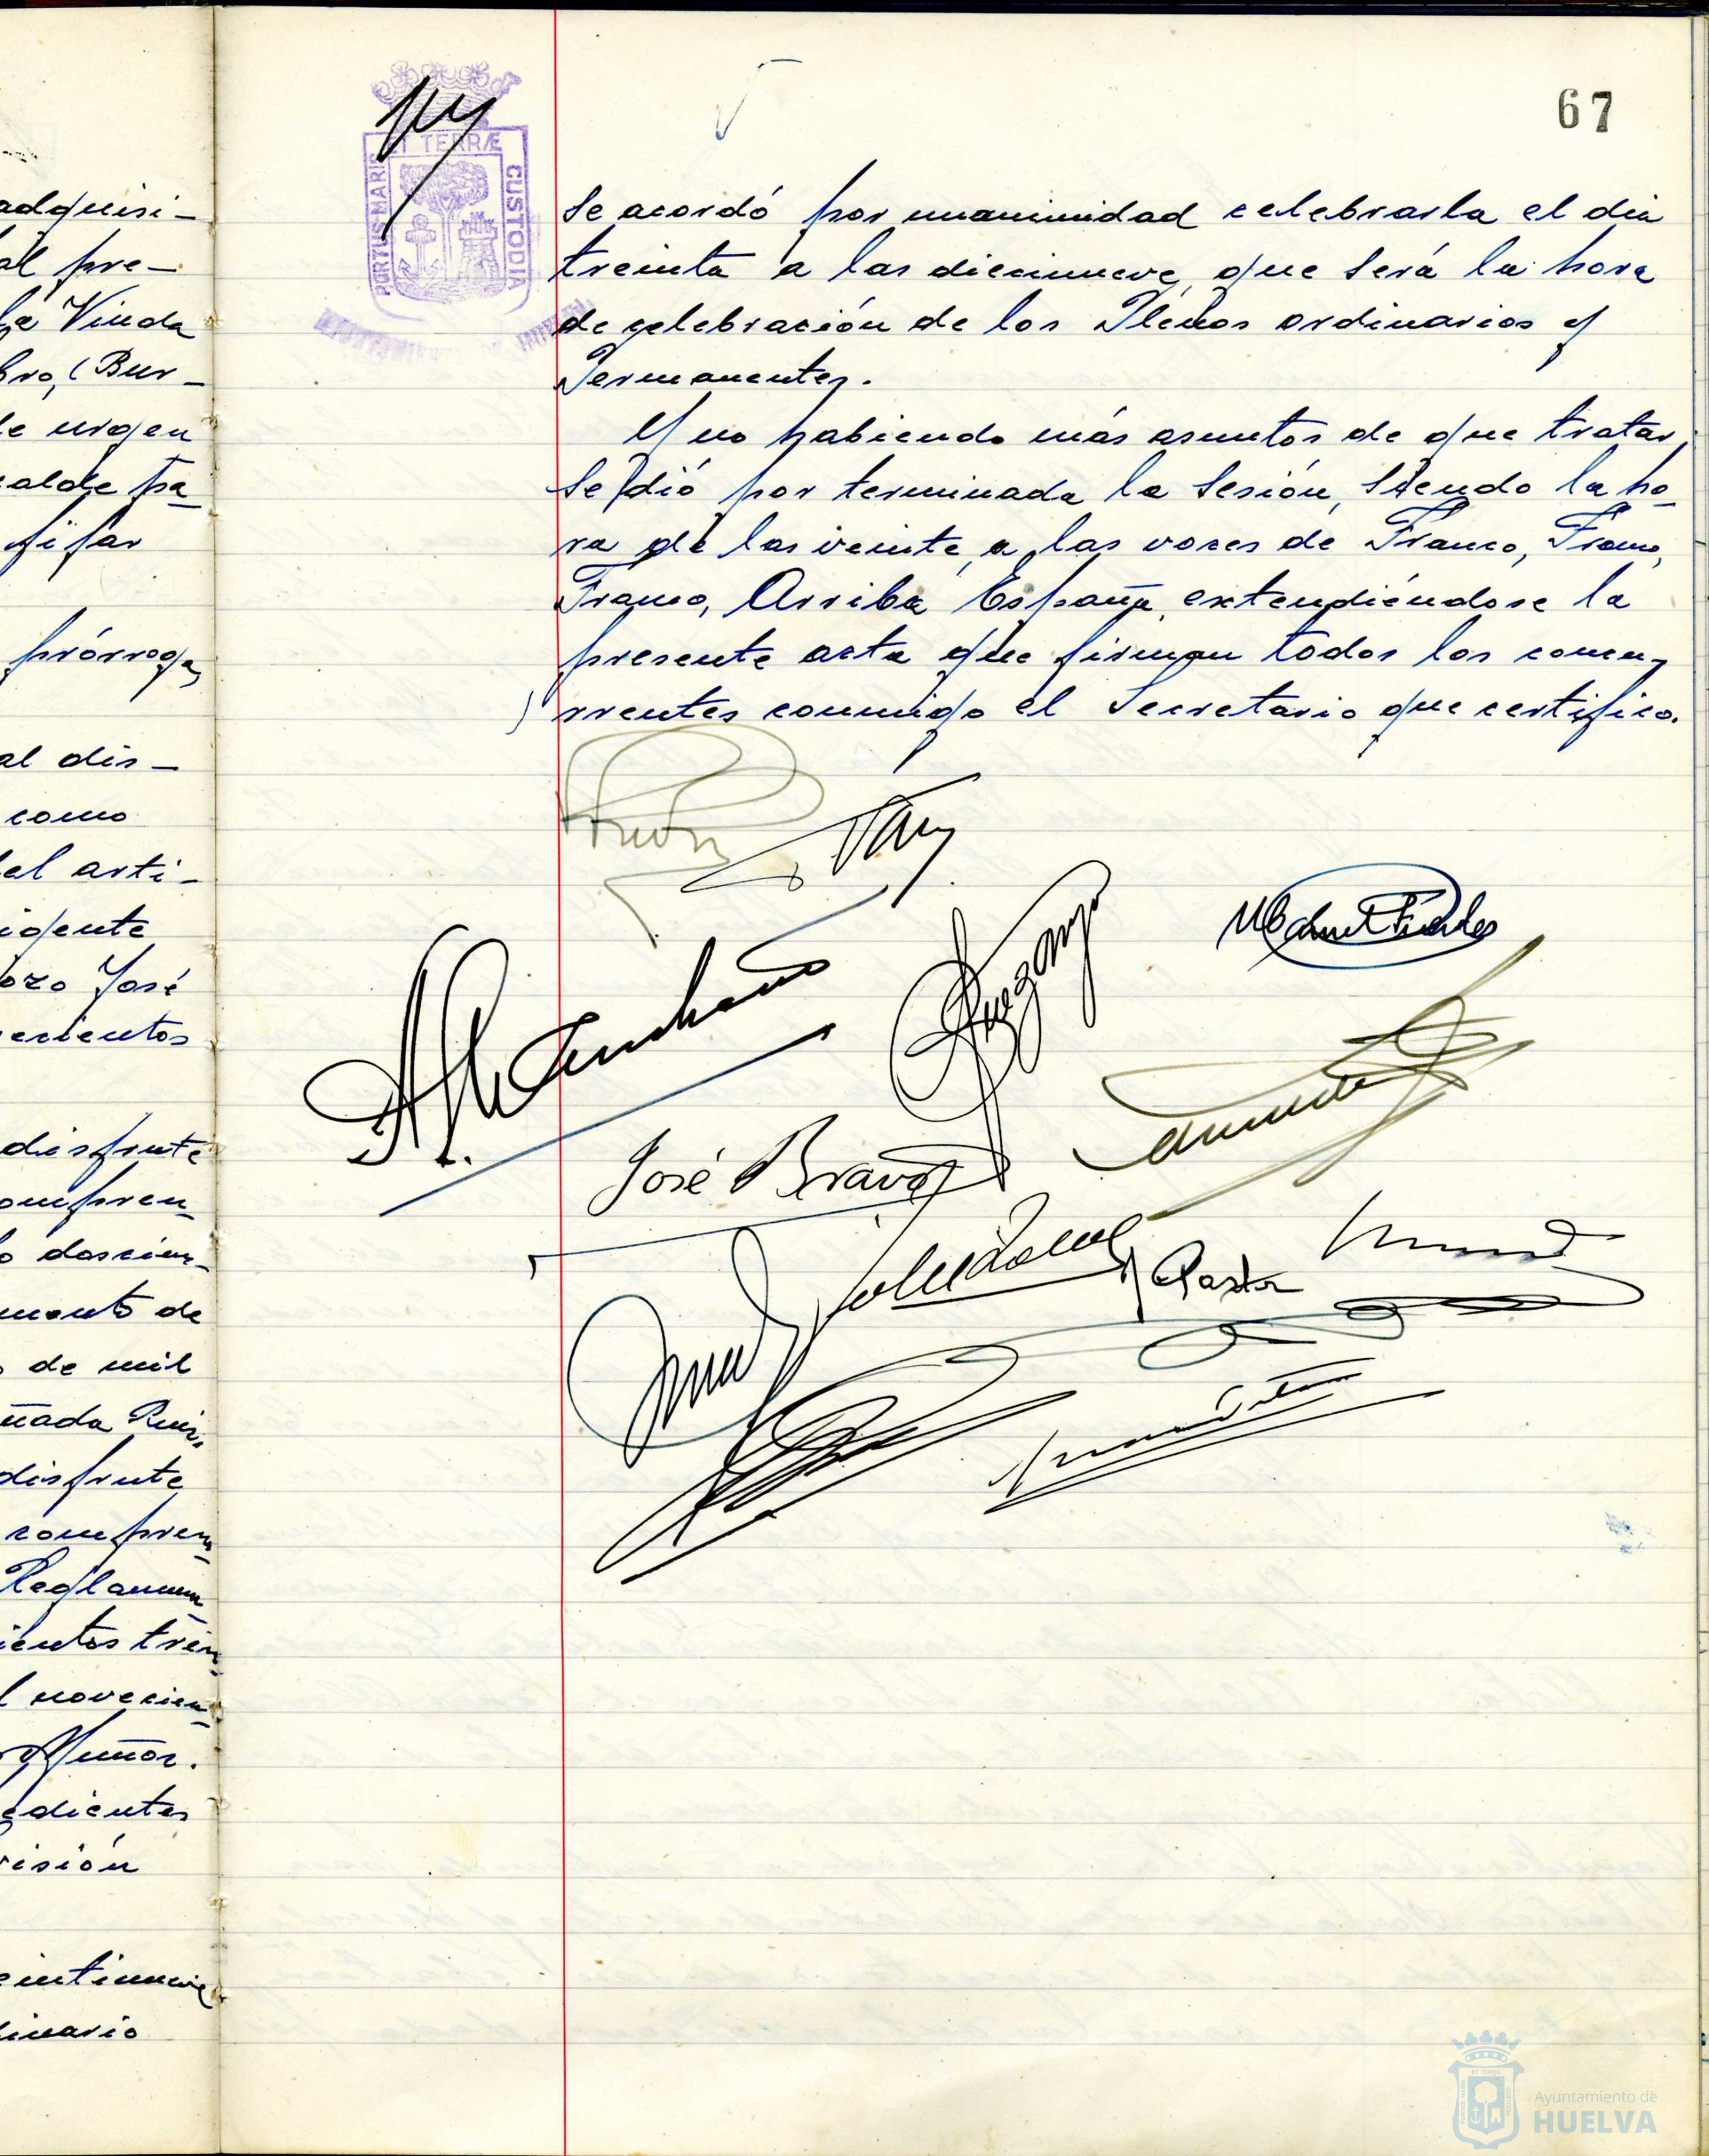 adquisi-
al pre-
la Viuda
bro, (Bur-
de urgen
calde pa-
fijar
prórroga,
al dis-
como
el arti-
igente
ozo José
ecientos
disfrute
compren-
o doscien-
mento de
de mil
ñada Ruiz,
disfrute
compren-
Reglamen-
cientos trein-
l novecien-
Muñoz.
edientes
visión
eintinueve
dinario
67
PORTUS MARIS ET TERRÆ CUSTODIA
se acordó por unanimidad celebrarla el dia
treinta a las diecinueve, que será la hora
de celebración de los Plenos ordinarios y
Permanentes.
Y no habiendo más asuntos de que tratar,
se dió por terminada la sesión, siendo la ho-
ra de las veinte, a las voces de Franco, Franco,
Franco, Arriba España, extendiéndose la
presente acta que firman todos los concu-
rrentes conmigo el Secretario que certifico.
José Bravo
Ayuntamiento de
HUELVA